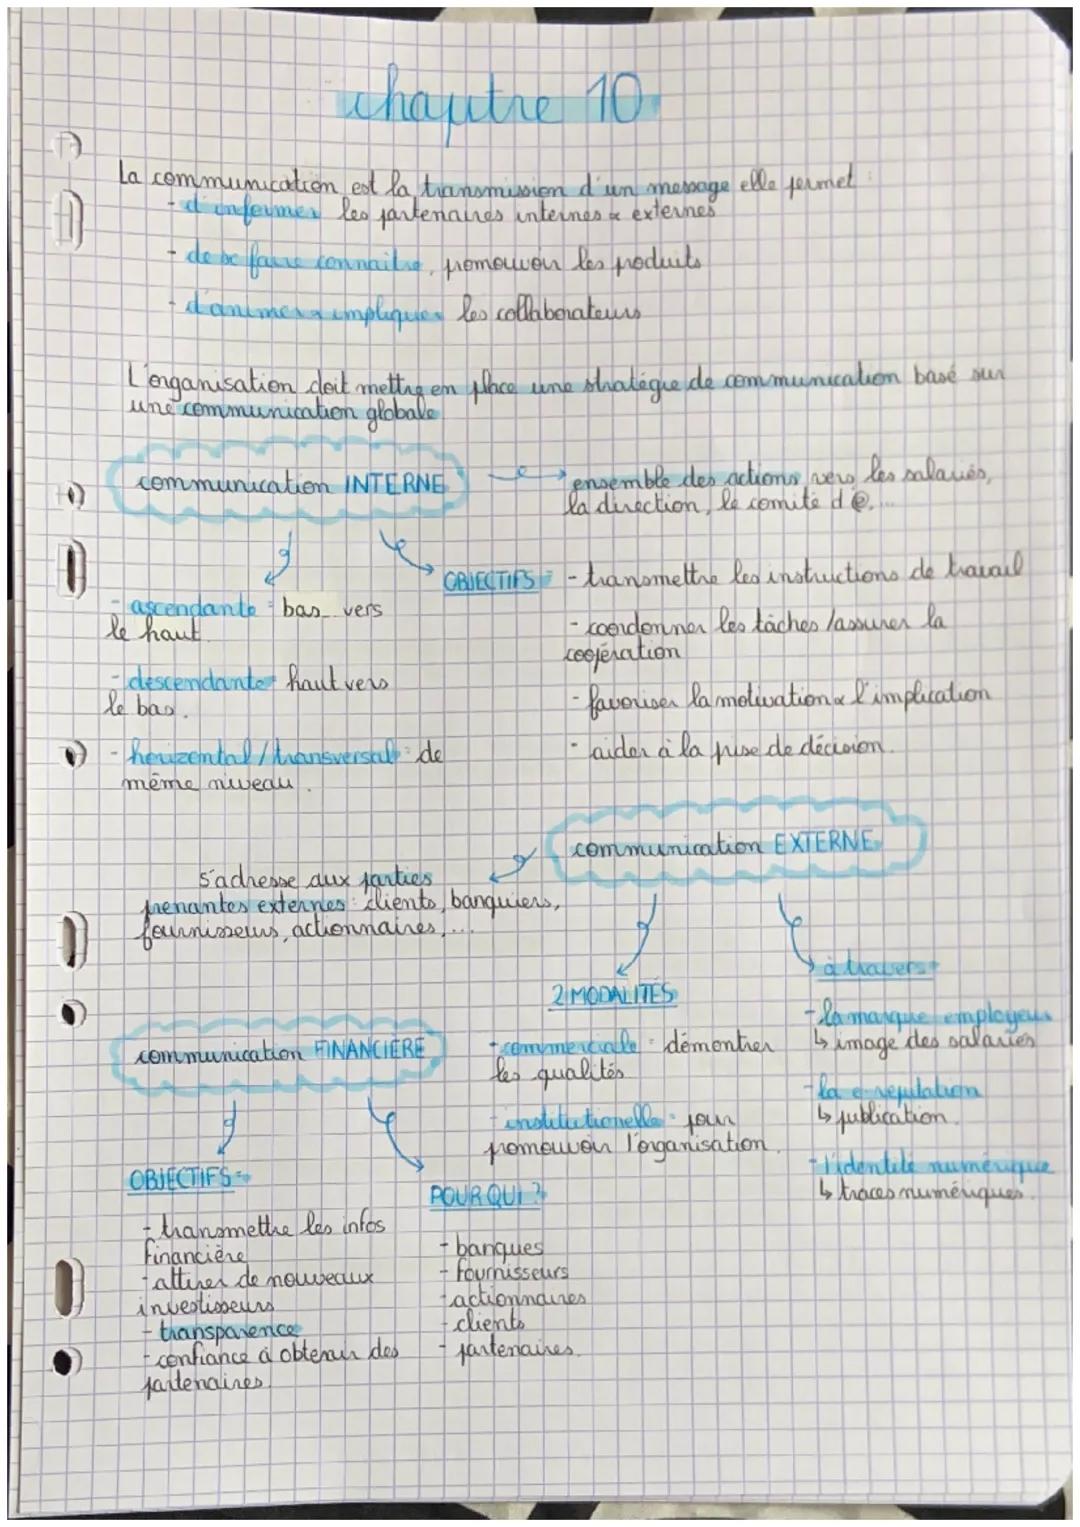 chapitre 10
La communication est la transmission d'un message elle permet :
- d'informer les partenaires internes & externes
- de se faire connaitre, promouvoir les produits
- d'animer & impliquer les collaborateurs
L'organisation doit mettre en place une stratégie de communication basé sur
une communication globale
communication INTERNE
ensemble des actions vers les salariés,
la direction, le comité d'@, ...
OBJECTIFS : - transmettre les instructions de travail
- coordonner les tâches /assurer la
coopération
- favoriser la motivation & l'implication
- aider à la prise de décision.
- ascendante : bas vers
le haut.
- descendante : haut vers
le bas.
- horizontal / transversal : de
même niveau.
communication EXTERNE
s'adresse aux parties
prenantes externes : clients, banquiers,
fournisseurs, actionnaires, ...
2 MODALITÉS
- commerciale : démontrer
les qualités
- institutionelle : pour
promouvoir l'organisation.
à travers :
- la marque employeur
↳ image des salariés
- la e-réputation
↳ publication.
- l'identité numérique
↳ traces numériques.
communication FINANCIÈRE
OBJECTIFS :
- transmettre les infos
financière
- attirer de nouveaux
investisseurs
- transparence
- confiance à obtenir des
partenaires.
POUR QUI ?
- banques
- fournisseurs
- actionnaires
- clients
- partenaires.